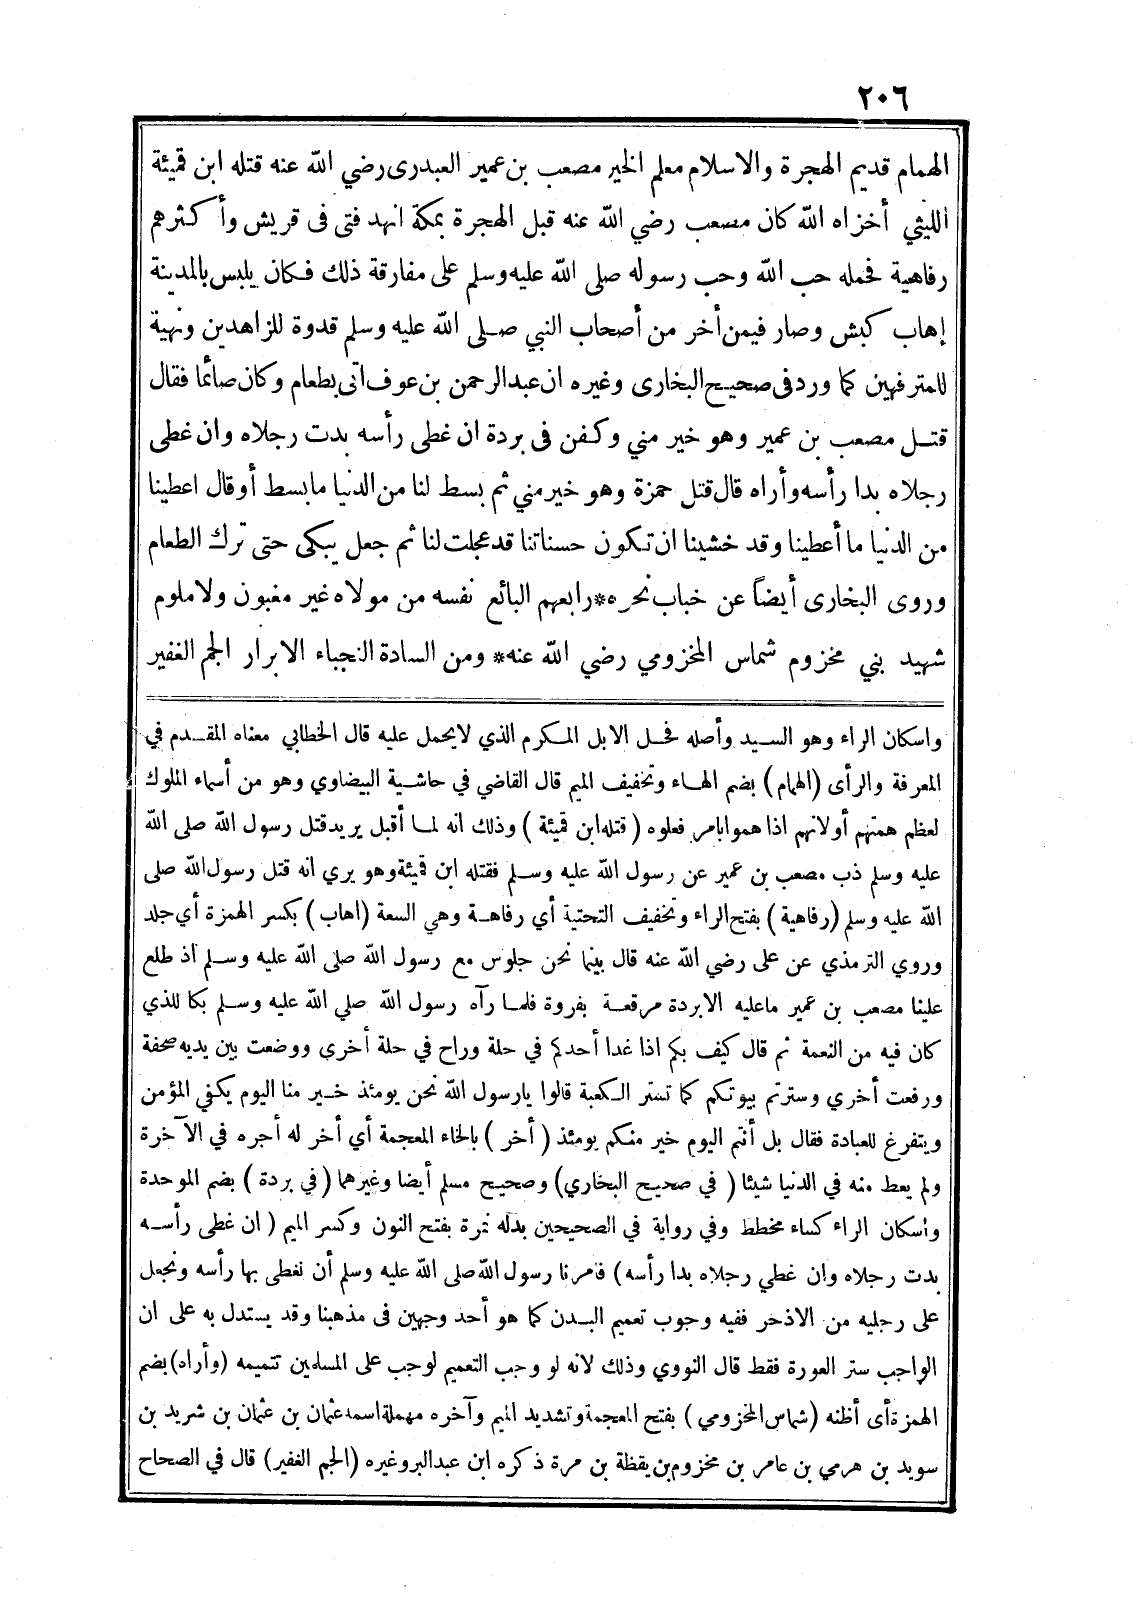 ٢٠٦
الهمام قديم الهجرة والاسلام معلم الخير مصعب بن عمير العبدرى رضي الله عنه قتله ابن قميئة
الليثي أخزاه الله كان مصعب رضي الله عنه قبل الهجرة بمكة انهد فتى فى قريش وأكثرهم
رفاهية فحمله حب الله وحب رسوله صلى الله عليه وسلم على مفارقة ذلك فكان يلبس بالمدينة
إهاب كبش وصار فيمن أخر من أصحاب النبي صلى الله عليه وسلم قدوة للزاهدين ونهية
للمترفهين كما ورد فى صحيح البخارى وغيره ان عبد الرحمن بن عوف اتى بطعام وكان صائما فقال
قتل مصعب بن عمير وهو خير مني وكفن فى بردة ان غطى رأسه بدت رجلاه وان غطى
رجلاه بدا رأسه وأراه قال قتل حمزة وهو خير مني ثم بسط لنا من الدنيا ما بسط أو قال اعطينا
من الدنيا ما أعطينا وقد خشينا ان تكون حسناتنا قد عجلت لنا ثم جعل يبكى حتى ترك الطعام
وروى البخارى أيضاً عن خباب نحره * رابعهم البائع نفسه من مولاه غير مغبون ولا ملوم
شهيد بني مخزوم شماس المخزومي رضي الله عنه * ومن السادة النجباء الابرار الجم الغفير
واسكان الراء وهو السيد وأصله فحل الابل المكرم الذي لا يحمل عليه قال الخطابي معناه المقدم في
المعرفة والرأى (الهمام) بضم الهاء وتخفيف الميم قال القاضي في حاشية البيضاوي وهو من أسماء الملوك
لعظم همتهم أو لانهم اذا هموا بامر فعلوه (قتله ابن قميئة) وذلك انه لما أقبل يريد قتل رسول الله صلى الله
عليه وسلم ذب مصعب بن عمير عن رسول الله عليه وسلم فقتله ابن قميئة وهو يري انه قتل رسول الله صلى
الله عليه وسلم (رفاهية) بفتح الراء وتخفيف التحتية أي رفاهة وهي السعة (اهاب) بكسر الهمزة أي جلد
وروي الترمذي عن على رضي الله عنه قال بينما نحن جلوس مع رسول الله صلى الله عليه وسلم اذ طلع
علينا مصعب بن عمير ما عليه الا بردة مرقعة بفروة فلما رآه رسول الله صلي الله عليه وسلم بكا للذي
كان فيه من النعمة ثم قال كيف بكم اذا غدا أحدكم في حلة وراح في حلة أخرى ووضعت بين يديه صحفة
ورفعت أخري وسترتم بيوتكم كما تستر الكعبة قالوا يارسول الله نحن يومئذ خير منا اليوم يكفي المؤمن
ويتفرغ للعبادة فقال بل أنتم اليوم خير منكم يومئذ (أخر) بالخاء المعجمة أي أخر له أجره في الآخرة
ولم يعط منه في الدنيا شيئا (في صحيح البخاري) وصحيح مسلم أيضا وغيرهما (في بردة) بضم الموحدة
وأسكان الراء كساء مخطط وفي رواية في الصحيحين بدله نمرة بفتح النون وكسر الميم (ان غطى رأسه
بدت رجلاه وان غطي رجلاه بدا رأسه) فامرنا رسول الله صلى الله عليه وسلم أن نغطى بها رأسه ونجعل
على رجليه من الاذخر ففيه وجوب تعميم البدن كما هو أحد وجهين فى مذهبنا وقد يستدل به على ان
الواجب ستر العورة فقط قال النووي وذلك لانه لو وجب التعميم لوجب على المسلمين تتميمه (وأراه) بضم
الهمزة أى أظنه (شماس المخزومي) بفتح المعجمة وتشديد الميم وآخره مهملة اسمه عثمان بن عثمان بن شريد بن
سويد بن هرمي بن عامر بن مخزوم بن يقظة بن مرة ذكره ابن عبد البر وغيره (الجم الغفير) قال في الصحاح